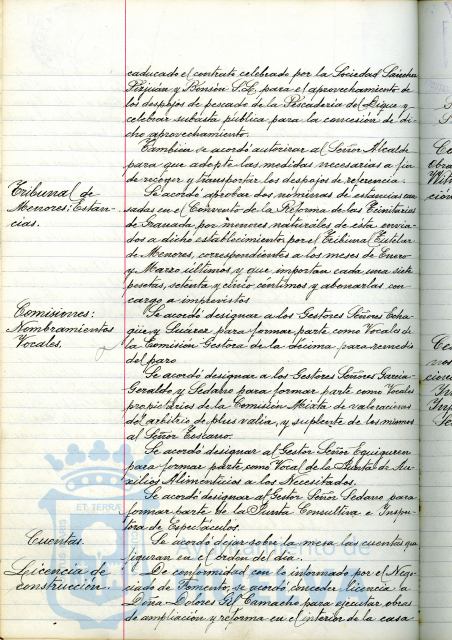 caducado el contrato celebrado por la Sociedad Sánchez
Pizjuán y Bonsón S.L. para el aprovechamiento de
los despojos de pescado de la Pescadería del Dique y
celebrar subasta pública para la concesión de di-
cho aprovechamiento.
También se acordó autorizar al Señor Alcalde
para que adopte las medidas necesarias a fin
de recoger y transportar los despojos de referencia.
Tribunal de
Menores: Estan-
cias.
Se acordó aprobar dos nóminas de estancias cau-
sadas en el Convento de la Reforma de las Trinitarias
de Granada por menores naturales de ésta envia-
dos a dicho establecimiento por el Tribunal Tutelar
de Menores, correspondientes a los meses de Enero
y Marzo últimos y que importan cada una siete
pesetas, setenta y cinco céntimos y abonarlas con
cargo a imprevistos
Comisiones:
Nombramientos
Vocales.
Se acordó designar a los Gestores Señores Echa-
güe y Suárez para formar parte como Vocales de
la Comisión Gestora de la Décima para remedio
del paro
Se acordó designar a los Gestores Señores García-
Geraldo y Sedano para formar parte como Vocales
propietarios de la Comisión Mixta de valoraciones
del arbitrio de plus valía, y suplente de los mismos
al Señor
Se acordó designar al Gestor Señor Eguiguren
para formar parte como Vocal de la Junta de Au-
xilios Alimenticios a los Necesitados.
Se acordó designar al Gestor Señor Sedano para
formar parte de la Junta Consultiva e Inspec-
tora de Espectáculos.
Cuentas.
Se acordó dejar sobre la mesa las cuentas que
figuran en el orden del día.
Licencia de
construcción.
De conformidad con lo informado por el Nego-
ciado de Fomento, se acordó conceder licencia a
Doña Dolores Gil Camacho para ejecutar obras
de ampliación y reforma en el interior de la casa
ET TERRA